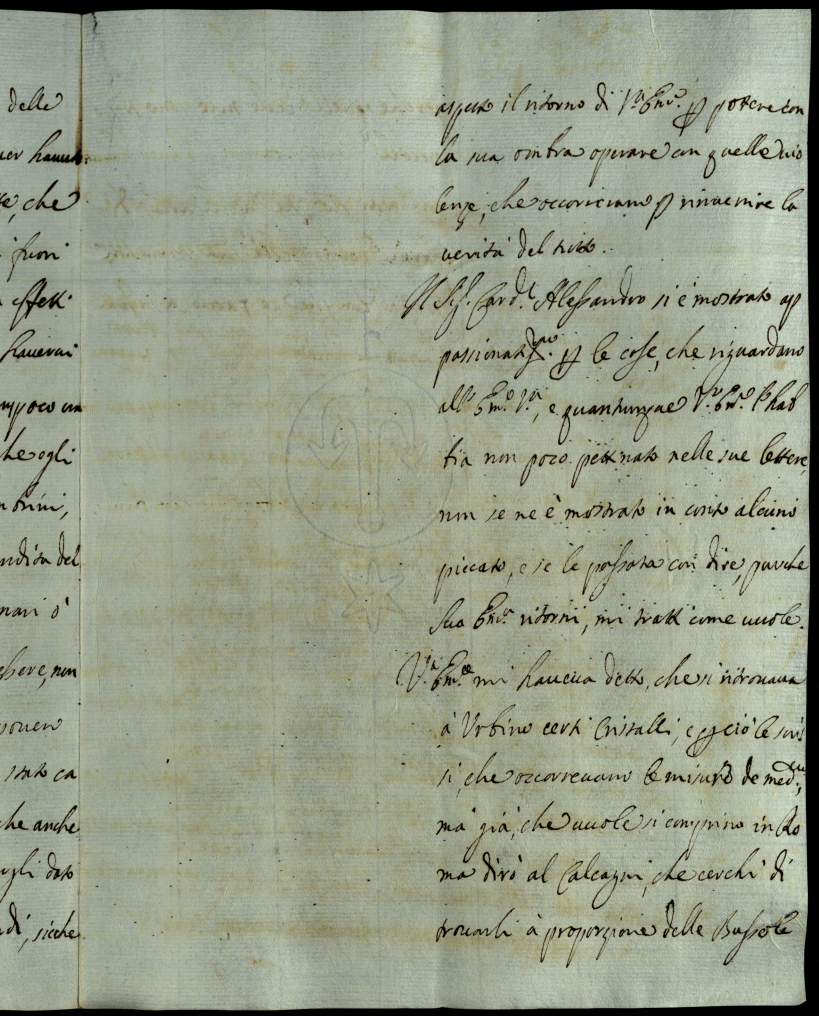 delle
che
fuori
effetti
haverai
che ogli
brini,
del
nari ó
non
stato ca
che anche
dato
sicche
aspetto il ritorno di V.ra Em.za p potere con
la sua ombra operare con quelle vio
lenze, che occorreranno p rinvenire la
verità del tutto.
Il Sig. Card.l Alessandro si è mostrato ap
passionatiss.mo p le cose, che riguardano
all' Em.a V.ra, e quantunque V.ra Em.a l'hab
bia non poco pettinato nelle sue lettere,
non se ne è mostrato in conto alcuno
piccato, e se le passata con dire, purche
Sua Em.za ritorni, mi tratti come vuole.
V.a Em.za mi haveva detto, che si ritrovava
à Urbino certi Cristalli, e p ciò le scris
si, che occorrevano le misure de med.mi,
mà già, che vuole si comprino in Ro
ma dirò al Calcagni, che cerchi di
trovarli à proporzione delle Bussole